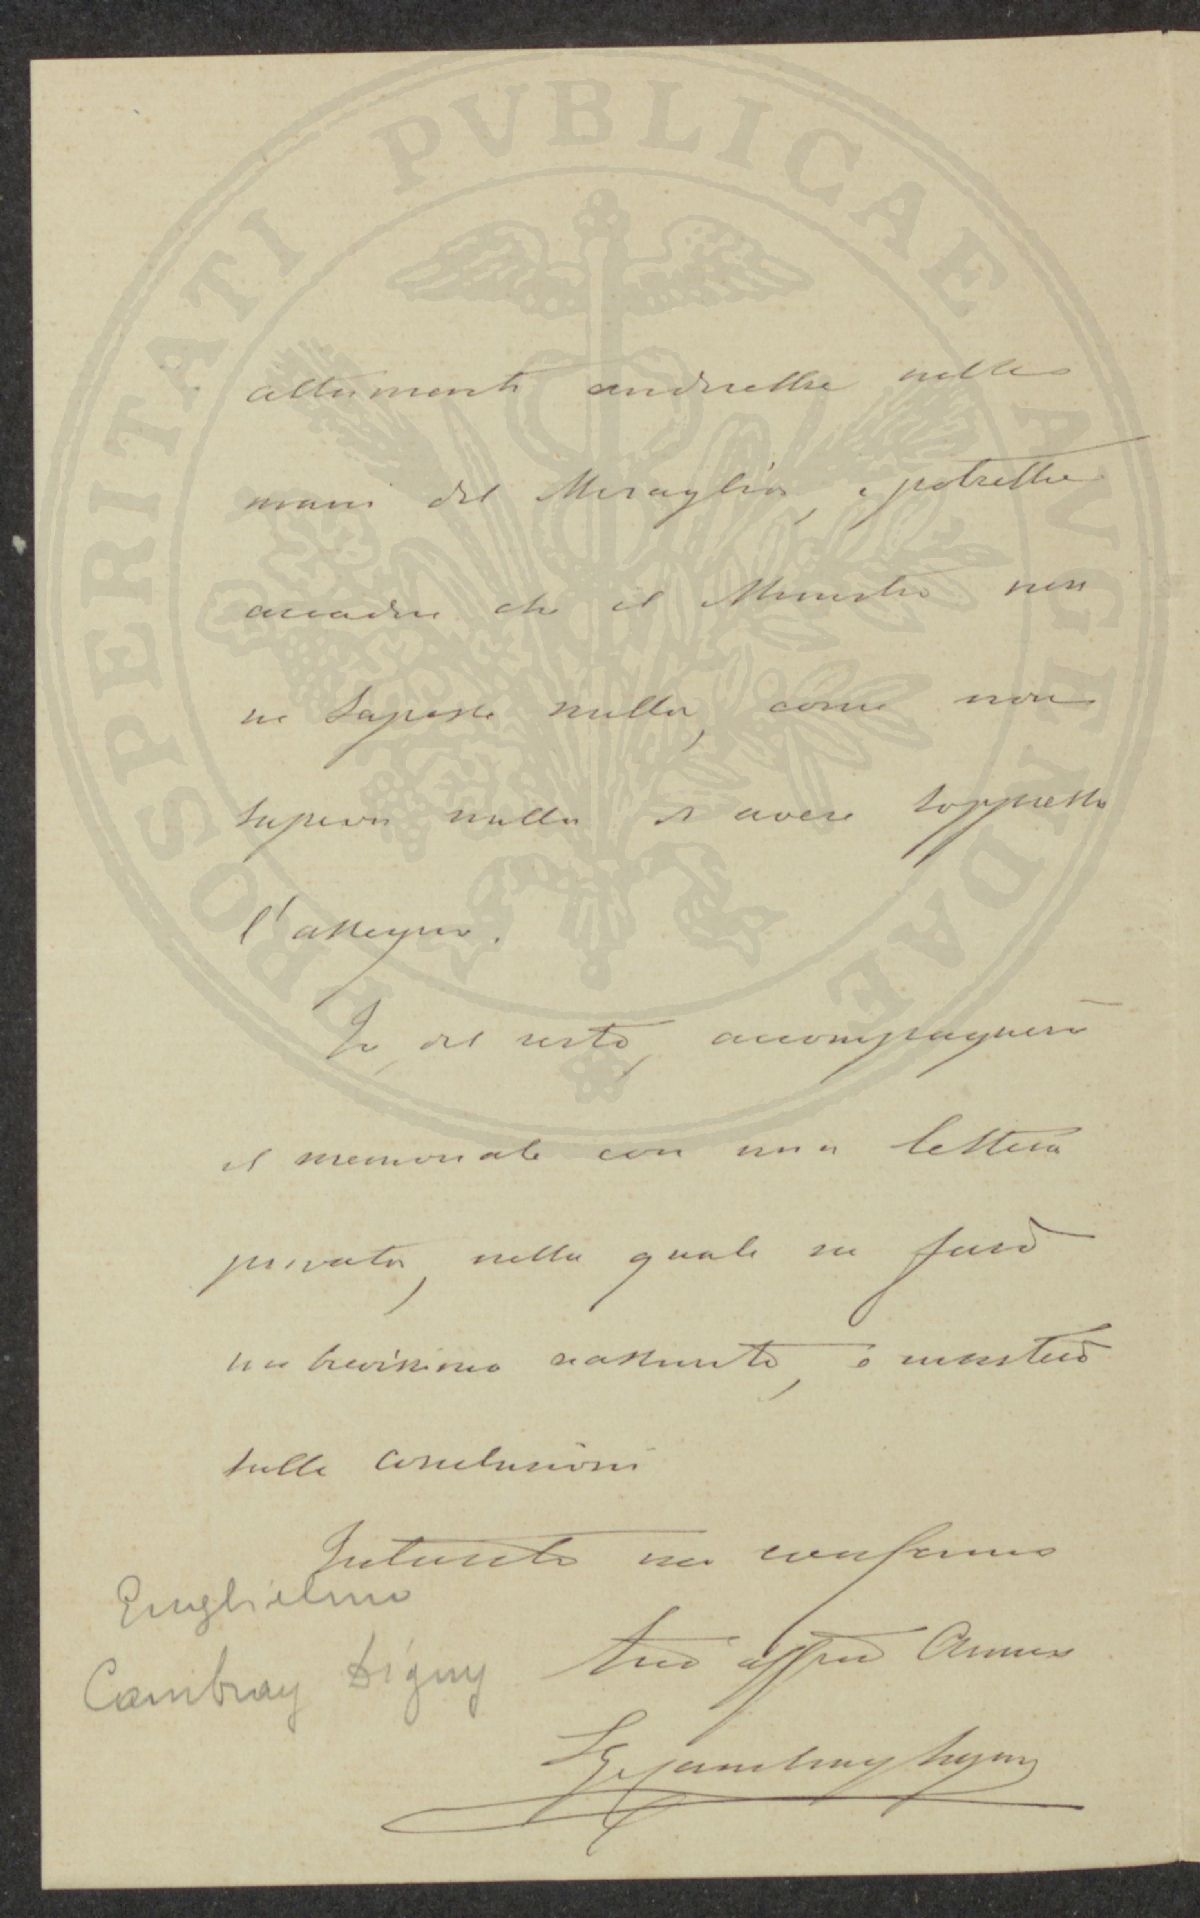 PROSPERITATI PVBLICAE AVGENDAE
altrimenti andrebbe nelle
mani del Miraglia, e potrebbe
accadere che il Ministro non
ne sapesse nulla, come non
sapeva nulla di avere soppresso
l'assegno.
Io, del resto, accompagnerò
il memoriale con una lettera
privata, nella quale ne farò
un brevissimo riassunto, e insisterò
sulle conclusioni
Intanto mi confermo
Guglielmo
Cambray Digny
Tuo affmo Amico
GCambrayDigny